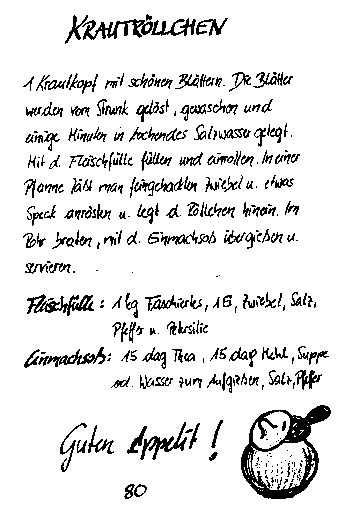 KRAUTRÖLLCHEN
1 Krautkopf mit schönen Blättern. Die Blätter
werden vom Strunk gelöst, gewaschen und
einige Minuten in kochendes Salzwasser gelegt.
Mit d. Fleischfülle füllen und einrollen. In einer
Pfanne läßt man feingehackten Zwiebel u. etwas
Speck anrösten u. legt d. Röllchen hinein. Im
Rohr braten, mit d. Einmachsoß übergießen u.
servieren.
Fleischfülle: 1 kg Faschiertes, 1 Ei, Zwiebel, Salz,
Pfeffer u. Petersilie
Einmachsoß: 15 dag Thea, 15 dag Mehl, Suppe
od. Wasser zum Aufgießen, Salz, Pfeffer
Guten Appetit!
80